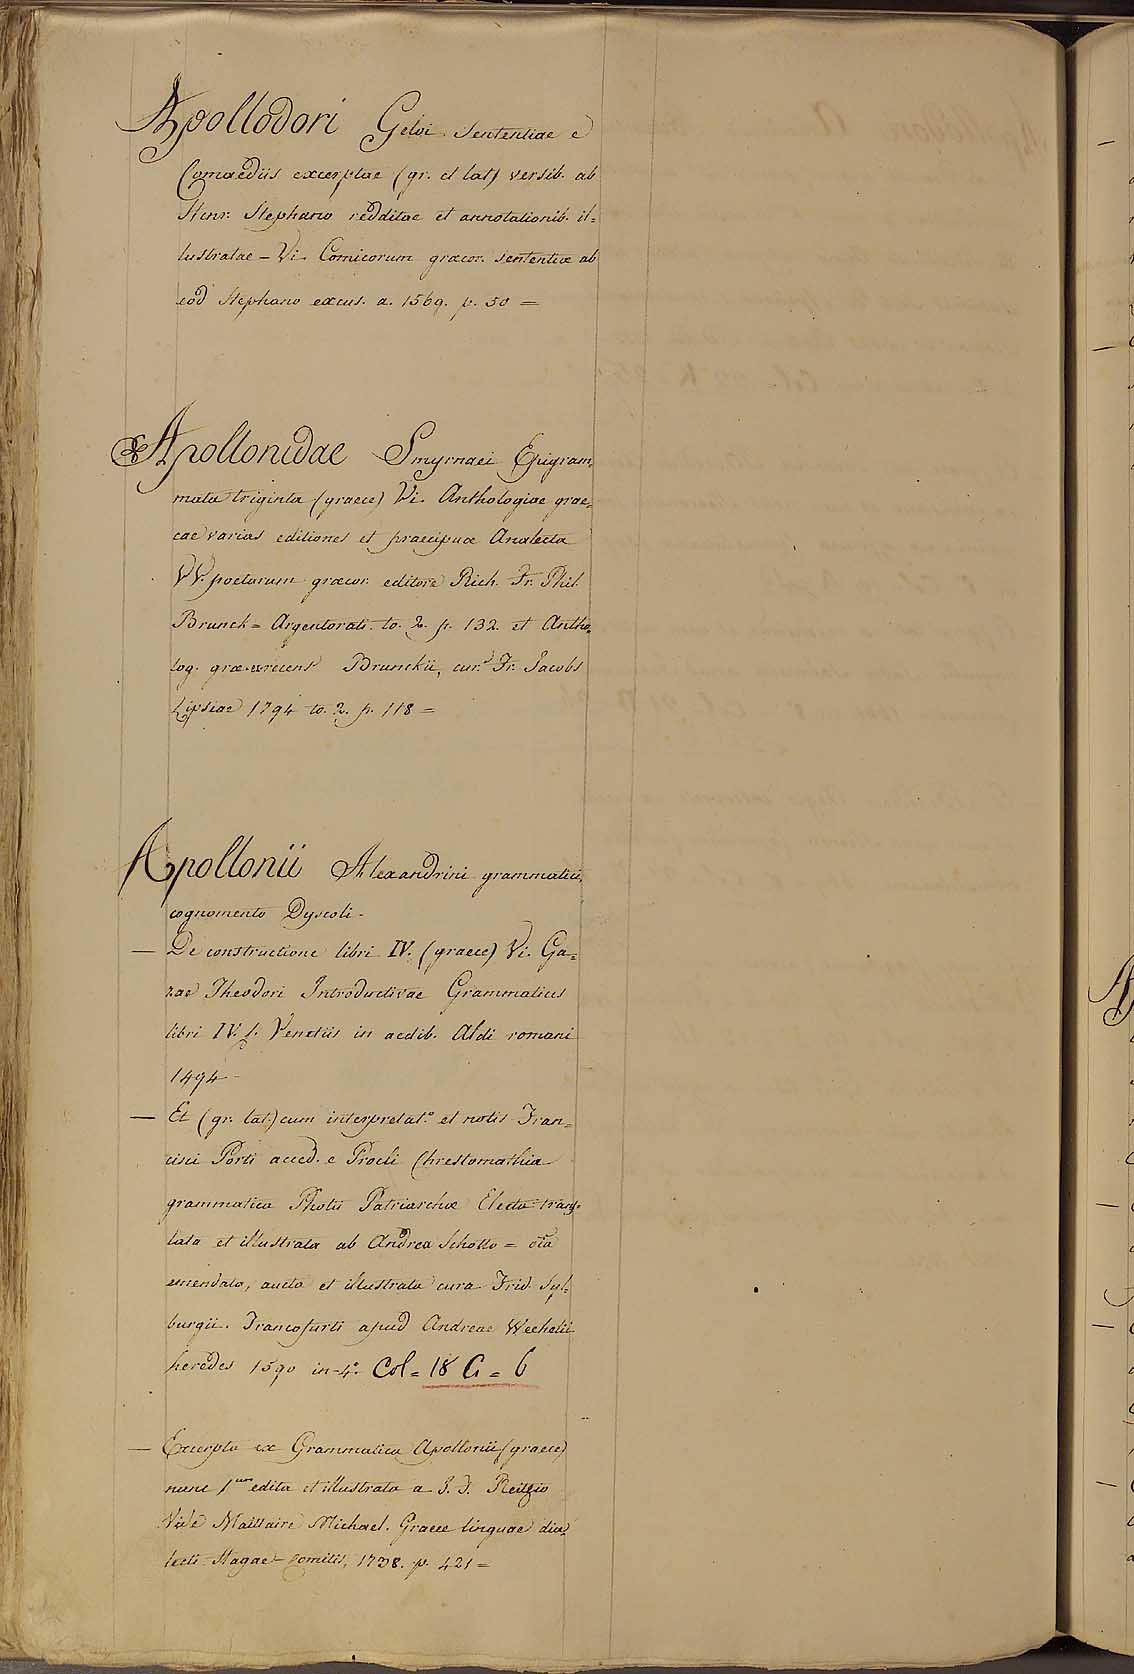 Apollodori Geloi Sententiae e
Comaediis excerptae (gr. et lat) versib. ab
Henr. Stephano redditae et annotationib. il=
lustratae - Vi. Comicorum græcor. sententiæ ab
eod Stephano excus. a. 1569. p. 50 =
Apollonidae Smyrnaei Epigram=
mata triginta (graece) Vi. Anthologiae grae=
cae varias editiones et praecipuæ Analecta
VV. poetarum græcor. editore Rich. Fr. Phil.
Brunck = Argentorati. to. 2. p. 132. et Antho=
log. græ. recens Brunckii, cur. Fr. Jacobs
Lipsiae 1794 to. 2. p. 118 =
Apollonii Alexandrini grammatici,
cognomento Dyscoli -
— De constructione libri IV. (graece) Vi. Ga=
zae Theodori Introductivae Grammatices
libri IV. f. Venetiis in aedib. Aldi romani
1494 -
— Et (gr. lat.) cum interpretat.e et notis Fran=
cisci Porti acced. e Procli Chrestomathia
grammatica Photii Patriarchæ Electa trans=
lata et illustrata ab Andrea Schotto = oia
emendata, aucta et illustrata cura Frid. Syl=
burgii. Francofurti apud Andreae Wechelii
heredes 1590 in-4.° Col = 18 G = 6
— Excerpta ex Grammatica Apollonii (graece)
nunc 1.um edita et illustrata a J. F. Reitzio
Vide Maittaire Michael. Graece linguae dia=
lecti Hagae-comitis, 1738. p. 421 =